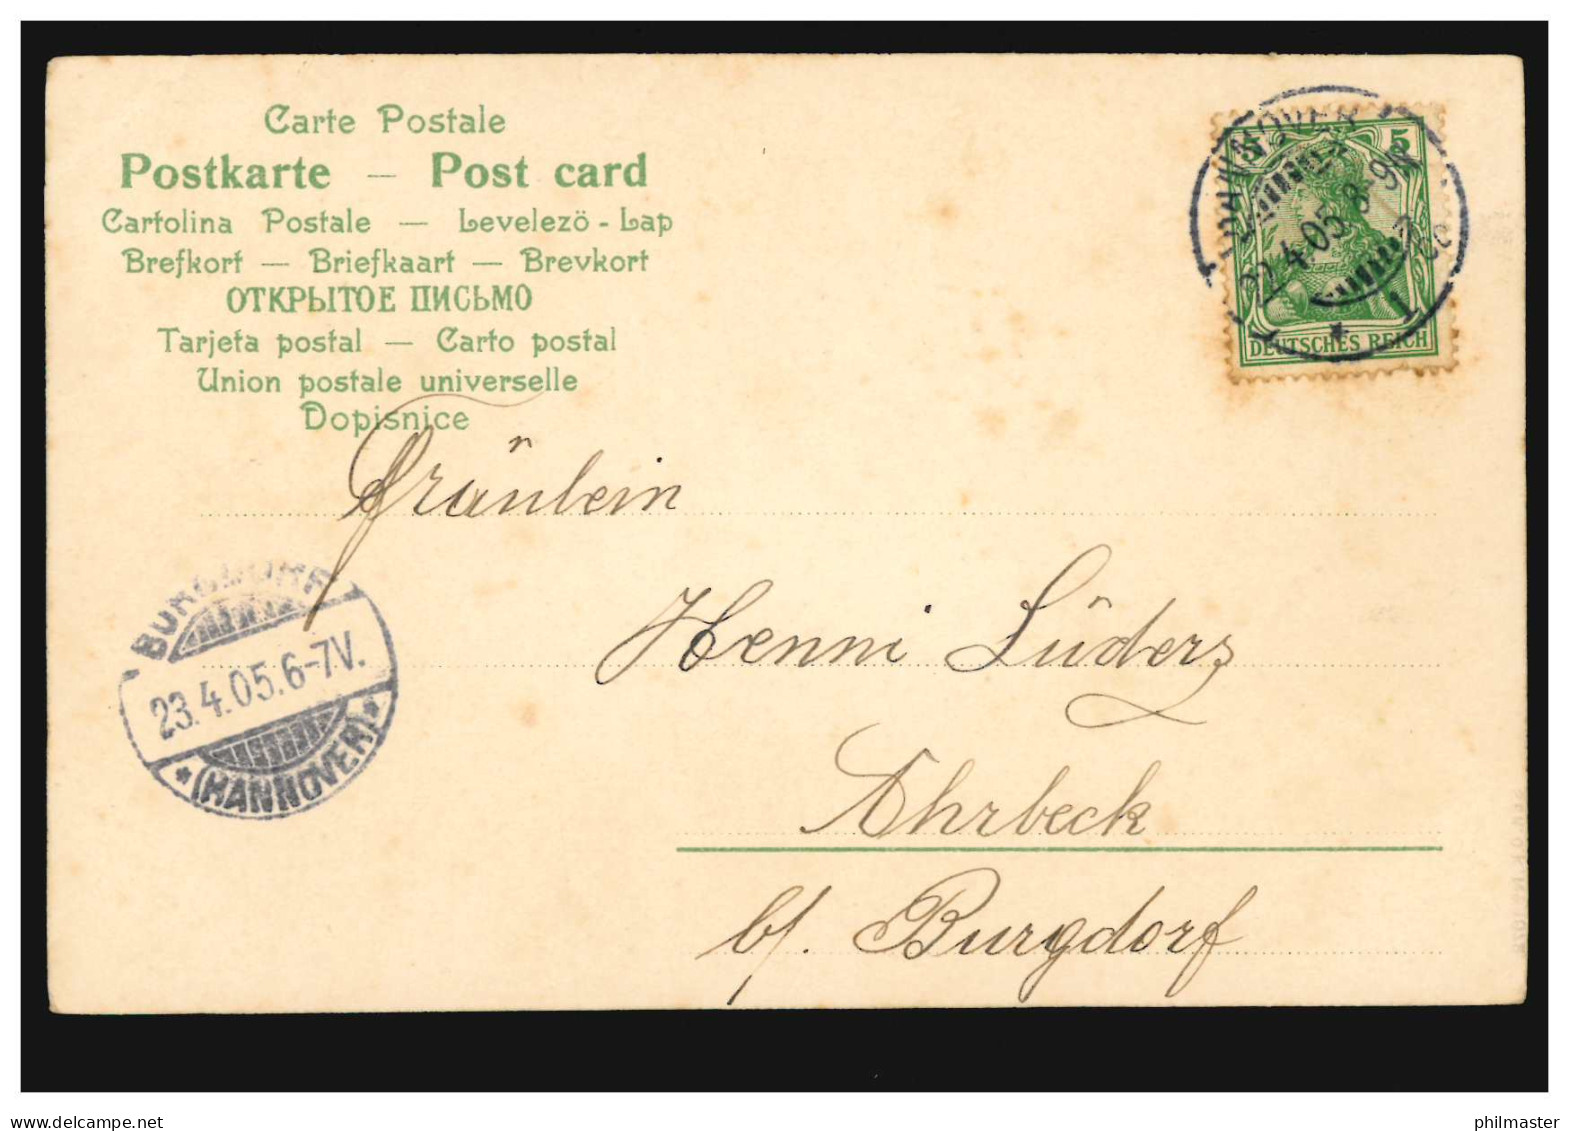 Carte Postale
Postkarte — Post card
Cartolina Postale — Levelezö-Lap
Brefkort — Briefkaart — Brevkort
ОТКРЫТОЕ ПИСЬМО
Tarjeta postal — Carto postal
Union postale universelle
Dopisnice
HANNOVER
5 5
22.4.05. 8-9N
1
DEUTSCHES REICH
Fräulein
Henni Lüders
Ahrbeck
b/. Burgdorf
BURGDORF
23.4.05.6-7V.
*(HANNOVER)*
delcampe.net
philmaster